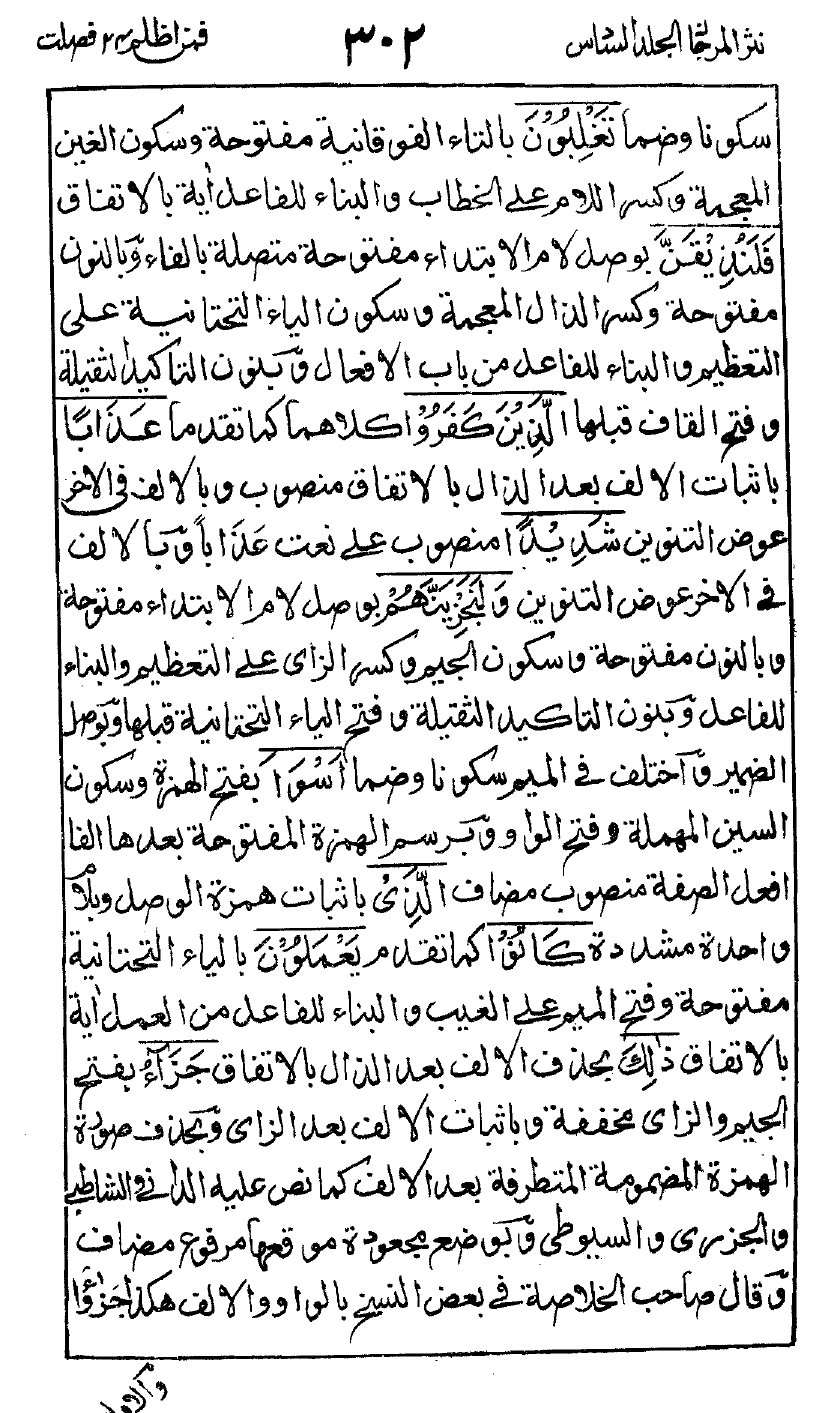 نثر المرجان المجلد السادس
٣٠٢
فمن اظلم ٢٤ فصلت
سكونا وضما تَغْلِبُوْنَ بالتاء الفوقانية مفتوحة وسكون الغين
المعجمة وكسر اللام على الخطاب والبناء للفاعل اٰية بالاتفاق
فَلَنُذِيْقَنَّ بوصل لام الابتداء مفتوحة متصلة بالفاء وّبالنون
مفتوحة وكسر الذال المعجمة وسكون الياء التحتانية على
التعظيم والبناء للفاعل من باب الافعال وّبنون التاكيد الثقيلة
وفتح القاف قبلها الَّذِيْنَ كَفَرُوْا كلاهما كما تقدما عَذَابًا
باثبات الالف بعد الذال بالاتفاق منصوب وبالالف فى الاخر
عوض التنوين شَدِيْدًا منصوب على نعت عَذَاباً وّبالالف
فى الاخر عوض التنوين وَلَنَجْزِيَنَّهُمْ بوصل لام الابتداء مفتوحة
وبالنون مفتوحة وسكون الجيم وكسر الزاى على التعظيم والبناء
للفاعل وّبنون التاكيد الثقيلة وفتح الياء التحتانية قبلها وّبوصل
الضمير وّاختلف فى الميم سكونا وضما اَسْوَاَ بفتح الهمزة وسكون
السين المهملة وفتح الواو وّبرسم الهمزة المفتوحة بعدها الفا
افعل الصفة منصوب مضاف الَّذِىْ باثبات همزة الوصل وبلام
واحدة مشددة كَانُوْا كما تقدم يَعْمَلُوْنَ بالياء التحتانية
مفتوحة وفتح الميم على الغيب والبناء للفاعل من العمل اٰية
بالاتفاق ذٰلِكَ بحذف الالف بعد الذال بالاتفاق جَزَآءُ بفتح
الجيم والزاى مخففة وباثبات الالف بعد الزاى وّبحذف صورة
الهمزة المضمومة المتطرفة بعد الالف كما نص عليه الدانى والشاطبى
والجزرى والسيوطى وّبوضع مجعودة موقعها مرفوع مضاف
وّقال صاحب الخلاصة فى بعض النسخ بالواو والالف هكذا جَزٰٓؤُا